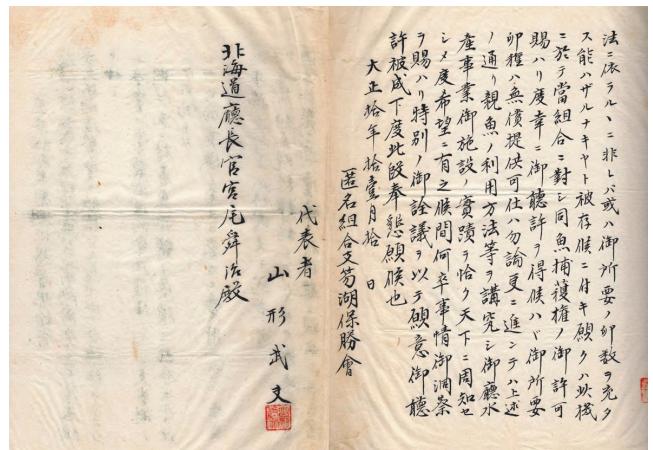 法ニ依ラルヽニ非レバ或ハ御所要ノ卵数ヲ充タ
ス能ハザルナキヤト被存候ニ付キ願クハ此機
ニ於テ當組合ニ對シ同魚捕獲権ノ御許可
賜ハリ度幸ニ御聴許ヲ得候ハヾ御所要
卵獲ハ無償提供可仕ハ勿論更ニ進ンテハ上述
ノ通リ親魚ノ利用方法等ヲ講究シ御廳水
産事業御施設ノ實蹟ヲ恰ク天下ニ周知セ
シメ度希望ニ有之候間何卒事情御洞察
ヲ賜ハリ特別ノ御詮議ヲ以テ願意御聴
許被成下度此段奉懇願候也
大正拾年拾壹月拾 日
匿名組合支笏湖保勝會
代表者
山形武文
北海道廳長官宮尾舜治殿